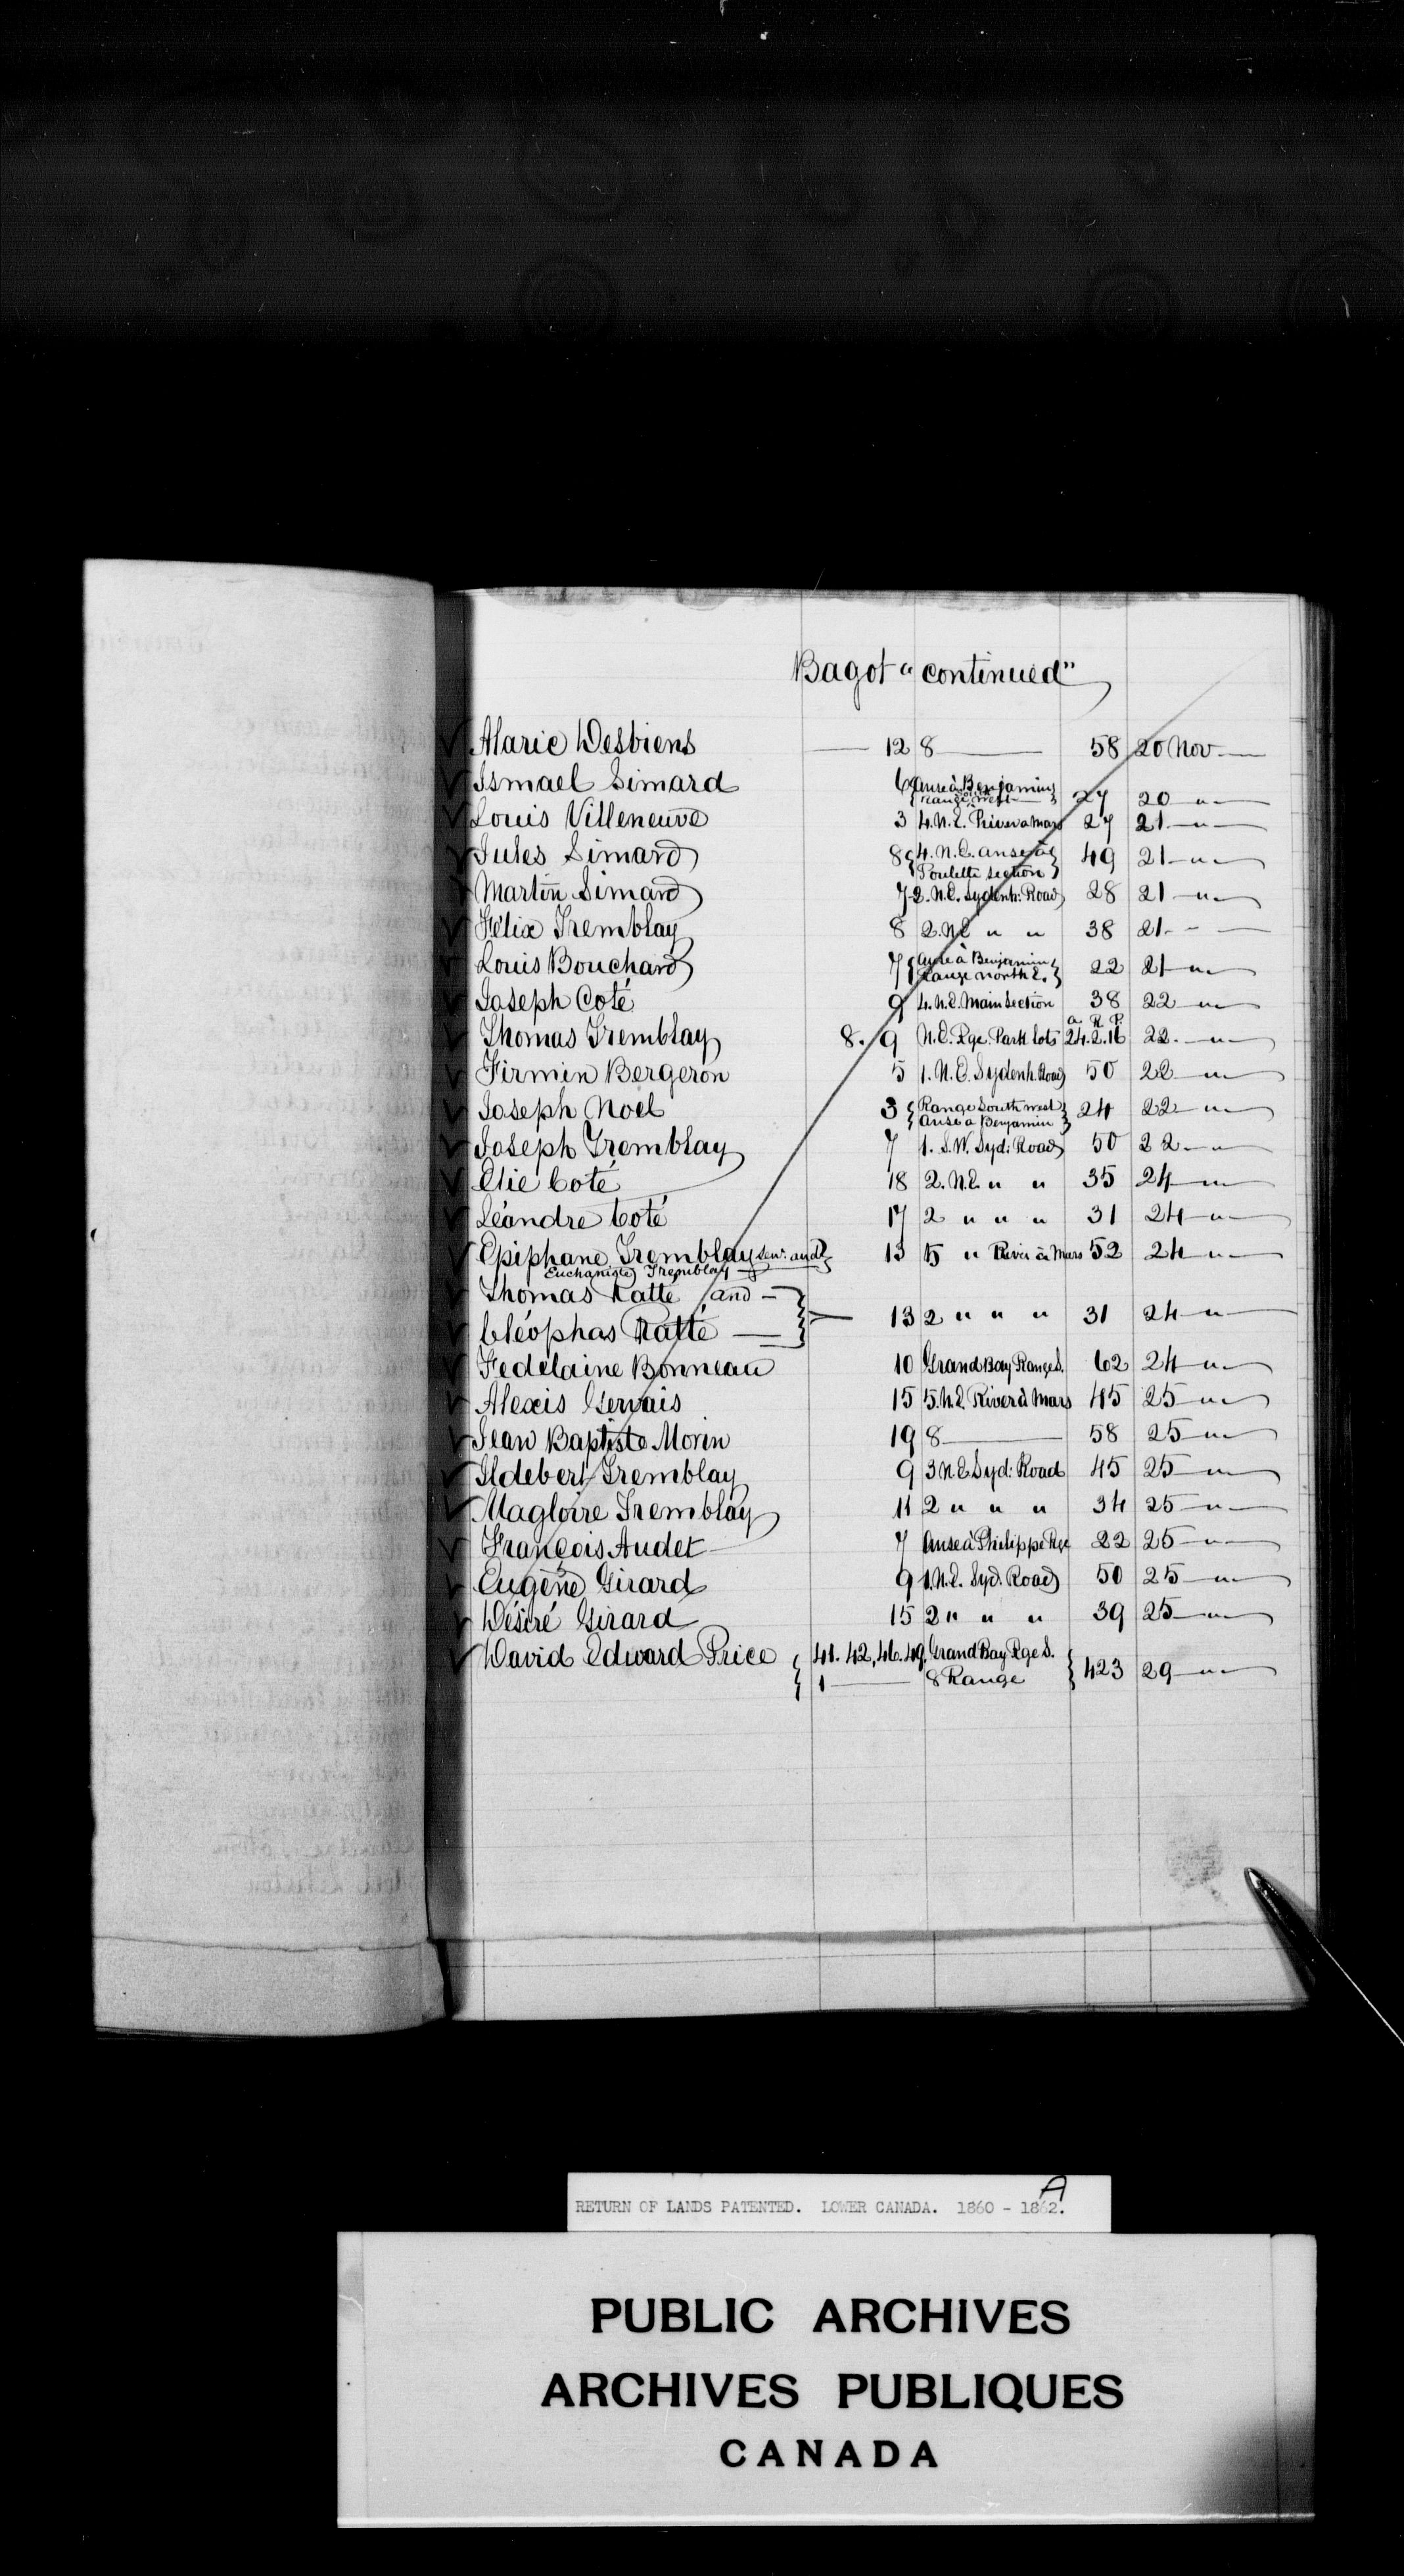 Bagot "continued"
✓ Marie Desbiens — 12 8 — 58 20 Nov —
✓ Ismael Simard 6 { Anse à Benjamin } 27 20 — " —
Range South West
✓ Louis Villeneuve 3 4. N.E. River a Mars 27 21 — " —
✓ Jules Simard 8 { 4. N.E. anse à } 49 21 — " —
Poulette Section
✓ Martin Simard 7 2. N.E. Sydenh: Road 28 21 — " —
✓ Félix Tremblay 8 2. N.E " " 38 21 - - —
✓ Louis Bouchard 7 { Anse à Benjamin } 22 21 — " —
Range North E.
✓ Joseph Coté 9 4. N.E. Main Section 38 22 — " —
a. R. P.
✓ Thomas Tremblay 8. 9 N.E. Rge. Park Lots 24. 2. 16 22. — " —
✓ Firmin Bergeron 5 1. N.E. Sydenh. Road 50 22 — " —
✓ Joseph Noel 3 { Range South West } 24 22 — " —
Anse a Benjamin
✓ Joseph Tremblay 7 1. S.W. Syd: Road 50 22 — " —
✓ Elie Coté 18 2. N.E. " " 35 24 — " —
✓ Léandre Coté 17 2 " " " 31 24 — " —
✓ Epiphane Tremblay Sen: and } 13 5 " River à Mars 52 24 — " —
Tremblay
✓ Thomas Ratté and — }
✓ Cléophas Ratté — } — 13 2 " " " 31 24 — " —
✓ Fedelaine Bonneau 10 Grand Bay Range S. 62 24 — " —
✓ Alexis Gervais 15 5. N.E. River à Mars 45 25 — " —
✓ Jean Baptiste Morin 19 8 — 58 25 — " —
✓ Ildebert Tremblay 9 3 N.E Syd: Road 45 25 — " —
✓ Magloire Tremblay 11 2 " " " 34 25 — " —
✓ François Audet 7 Anse à Philippe Rge 22 25 — " —
✓ Eugène Girard 9 1. N.E. Syd. Road 50 25 — " —
✓ Désiré Girard 15 2 " " " 39 25 — " —
✓ David Edward Price { 41. 42, 46. 49. Grand Bay Rge S. } 423 29 — " —
1 — 8 Range
RETURN OF LANDS PATENTED. LOWER CANADA. 1860 - 1862.
A
PUBLIC ARCHIVES
ARCHIVES PUBLIQUES
CANADA